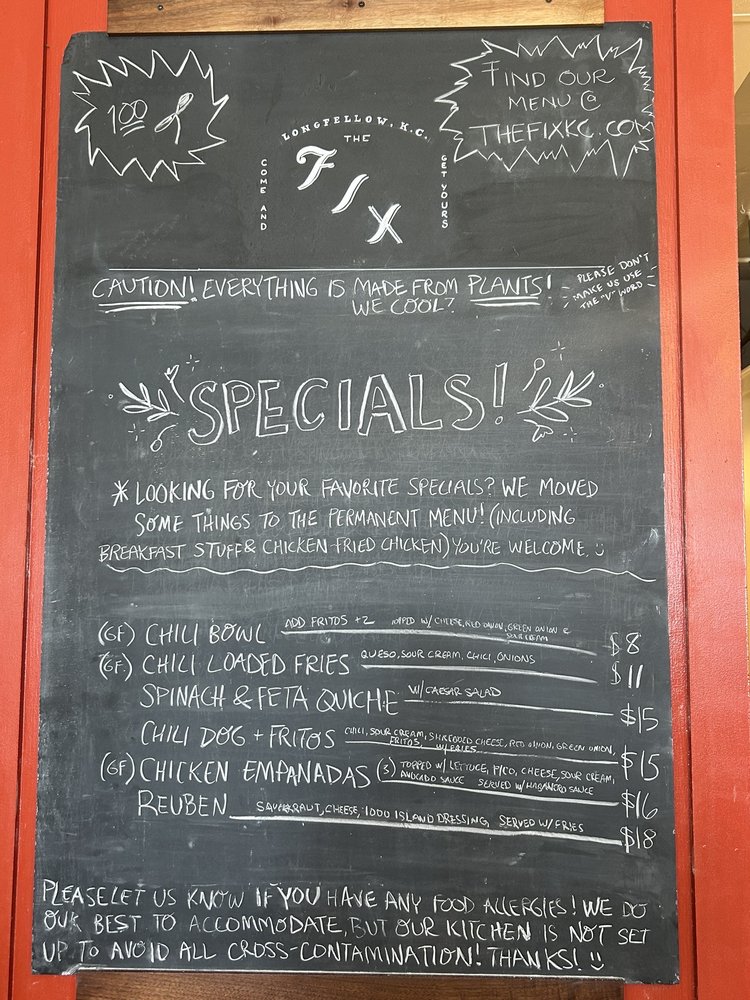 100
FIND OUR
MENU @
THEFIXKC.COM
LONGFELLOW, K.C.
THE
FIX
COME AND
GET YOURS
CAUTION! EVERYTHING IS MADE FROM PLANTS!
WE COOL?
PLEASE DON'T
MAKE US USE
THE "V" WORD
SPECIALS!
* LOOKING FOR YOUR FAVORITE SPECIALS? WE MOVED
SOME THINGS TO THE PERMANENT MENU! (INCLUDING
BREAKFAST STUFF & CHICKEN-FRIED CHICKEN) YOU'RE WELCOME :)
(GF) CHILI BOWL ADD FRITOS +2 TOPPED W/ CHEESE, RED ONION, GREEN ONION &
SOUR CREAM $8
(GF) CHILI LOADED FRIES QUESO, SOUR CREAM, CHILI, ONIONS $11
SPINACH & FETA QUICHE W/ CAESAR SALAD $15
CHILI DOG + FRITOS CHILI, SOUR CREAM, SHREDDED CHEESE, RED ONION, GREEN ONION,
FRITOS, W/ FRIES $15
(GF) CHICKEN EMPANADAS (3) TOPPED W/ LETTUCE, PICO, CHEESE, SOUR CREAM,
AVOCADO SAUCE SERVED W/ HABANERO SAUCE $16
REUBEN SAUERKRAUT, CHEESE, 1000 ISLAND DRESSING, SERVED W/ FRIES $18
PLEASE LET US KNOW IF YOU HAVE ANY FOOD ALLERGIES! WE DO
OUR BEST TO ACCOMMODATE, BUT OUR KITCHEN IS NOT SET
UP TO AVOID ALL CROSS-CONTAMINATION! THANKS! :)